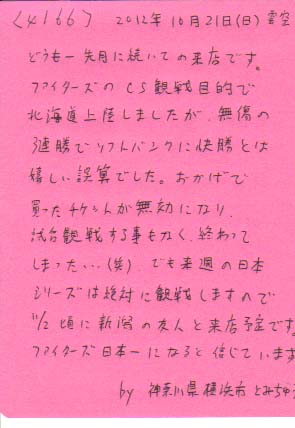 〈4166〉 2012年10月21日(日) 曇空
どうも一先月に続いての来店です。
ファイターズのCS観戦目的で
北海道上陸しましたが、無傷の
3連勝でソフトバンクに快勝とは
嬉しい誤算でした。おかげで
買ったチケットが無効になり、
試合観戦する事もなく、終わって
しまったい…(笑) でも来週の日本
シリーズは絶対に観戦しますので
11/2頃に新潟の友人と来店予定です。
ファイターズ日本一になると信じています
by 神奈川県横浜市 とみちゅう